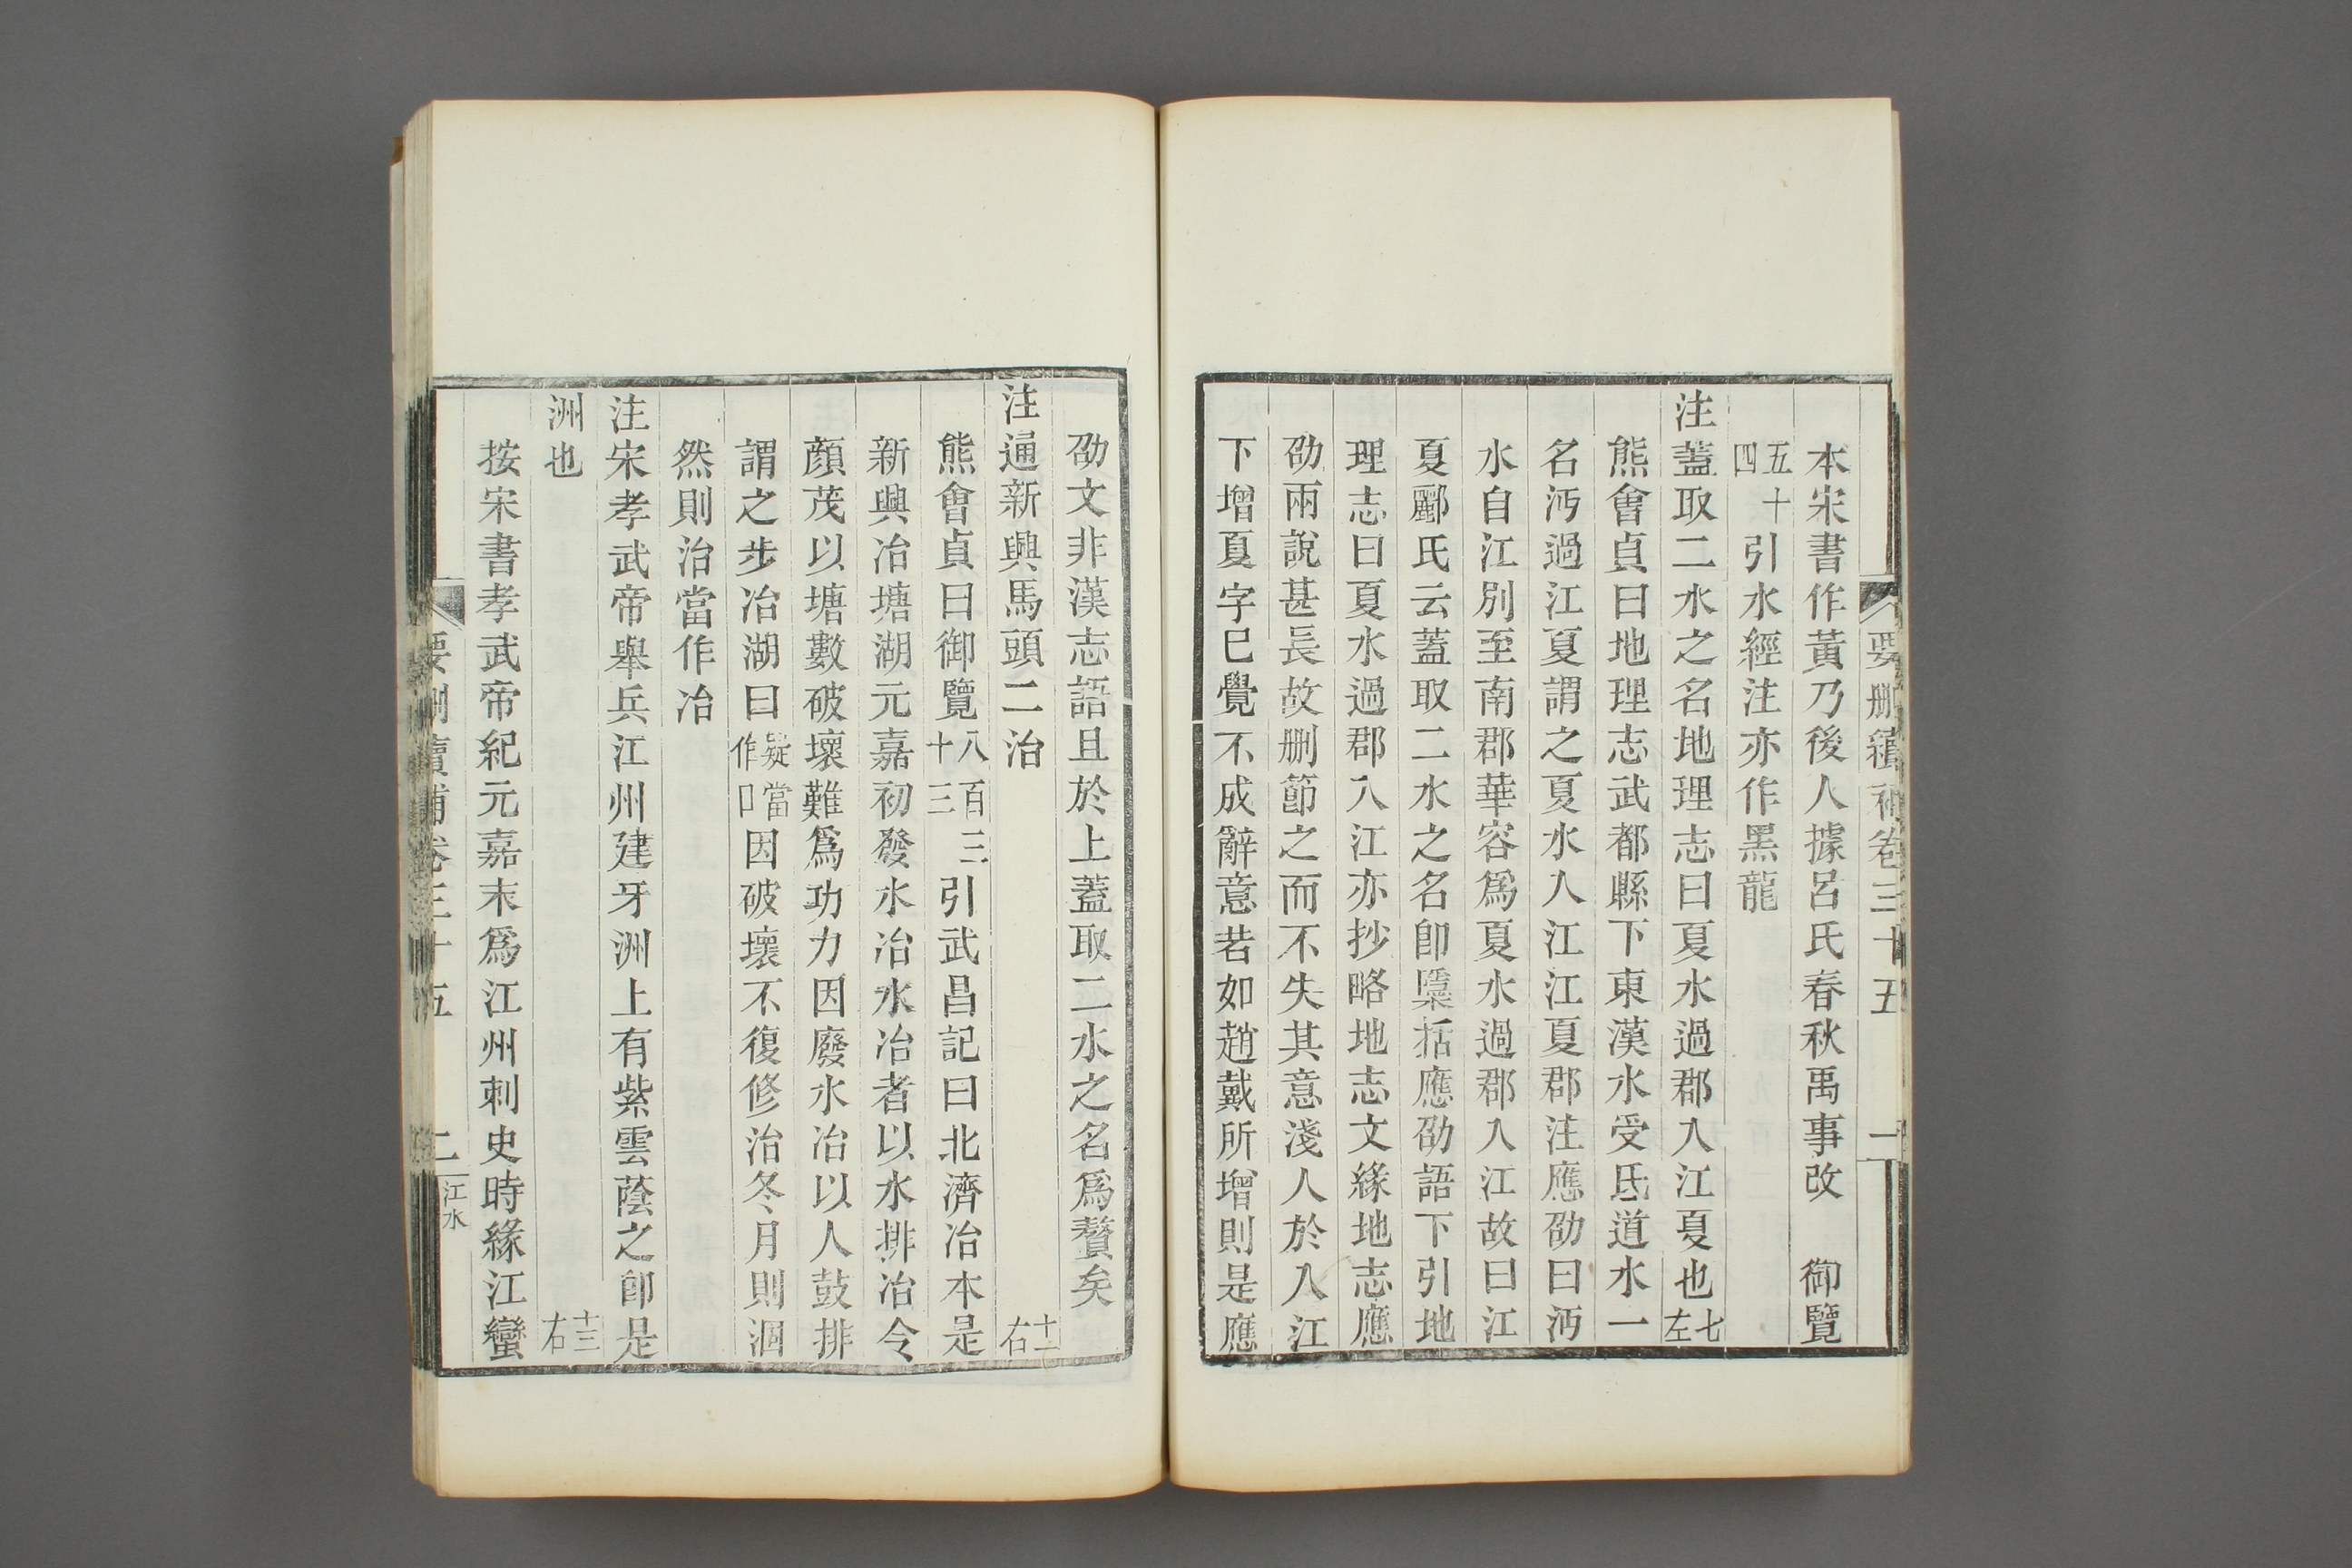 要刪續補卷三十五 一
本宋書作黃乃後人據呂氏春秋禹事改　御覽
五十四引水經注亦作黑龍
注蓋取二水之名地理志曰夏水過郡入江夏也七左
熊會貞曰地理志武都縣下東漢水受氐道水一
名沔過江夏謂之夏水入江江夏郡注應劭曰沔
水自江別至南郡華容爲夏水過郡入江故曰江
夏酈氏云蓋取二水之名卽檃括應劭語下引地
理志曰夏水過郡入江亦抄略地志文緣地志應
劭兩說甚長故刪節之而不失其意淺人於入江
下增夏字巳覺不成辭意若如趙戴所增則是應
劭文非漢志語且於上蓋取二水之名爲贅矣
注逼新興馬頭二治十二右
熊會貞曰御覽八百三十三引武昌記曰北濟冶本是
新興冶塘湖元嘉初發水冶水冶者以水排冶令
顏茂以塘數破壞難爲功力因廢水冶以人鼓排
謂之步冶湖曰疑當作口因破壞不復修治冬月則涸
然則治當作冶
注宋孝武帝舉兵江州建牙洲上有紫雲蔭之卽是十三右
洲也
按宋書孝武帝紀元嘉末爲江州刺史時緣江蠻
要刪續補卷三十五 二 江水